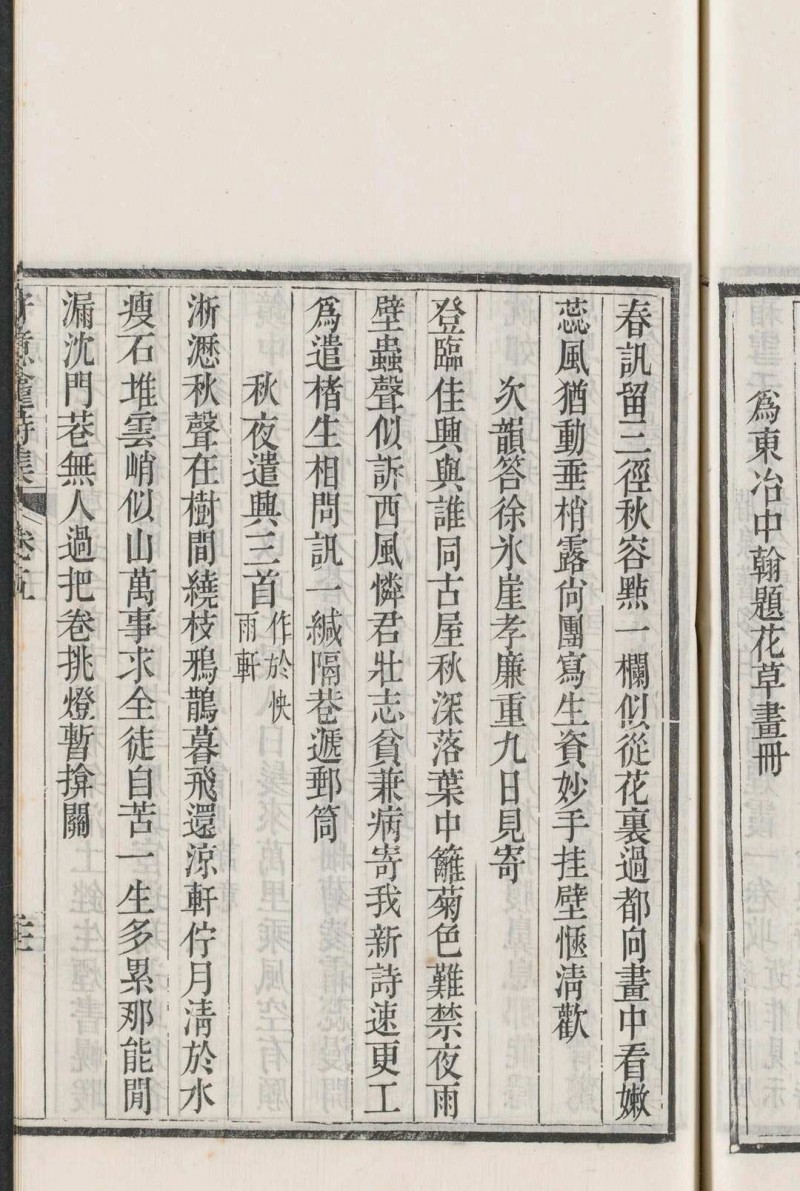 爲東冶中翰題花草畫冊
春訊留三徑秋容點一欄似從花裏過都向畫中看嫩
蕊風猶動垂梢露尙團寫生資妙手挂壁愜淸歡
次韻答徐氷崖孝廉重九日見寄
登臨佳興與誰同古屋秋深落葉中籬菊色難禁夜雨
壁蟲聲似訴西風憐君壯志貧兼病寄我新詩速更工
爲遣楮生相問訊一緘隔巷遞郵筒
秋夜遣興三首作於快
雨軒
淅瀝秋聲在樹間繞枝鴉鵲暮飛還涼軒佇月淸於水
瘦石堆雲峭似山萬事求全徒自苦一生多累那能閒
漏沈門巷無人過把卷挑燈暫揜關
詩集 卷五